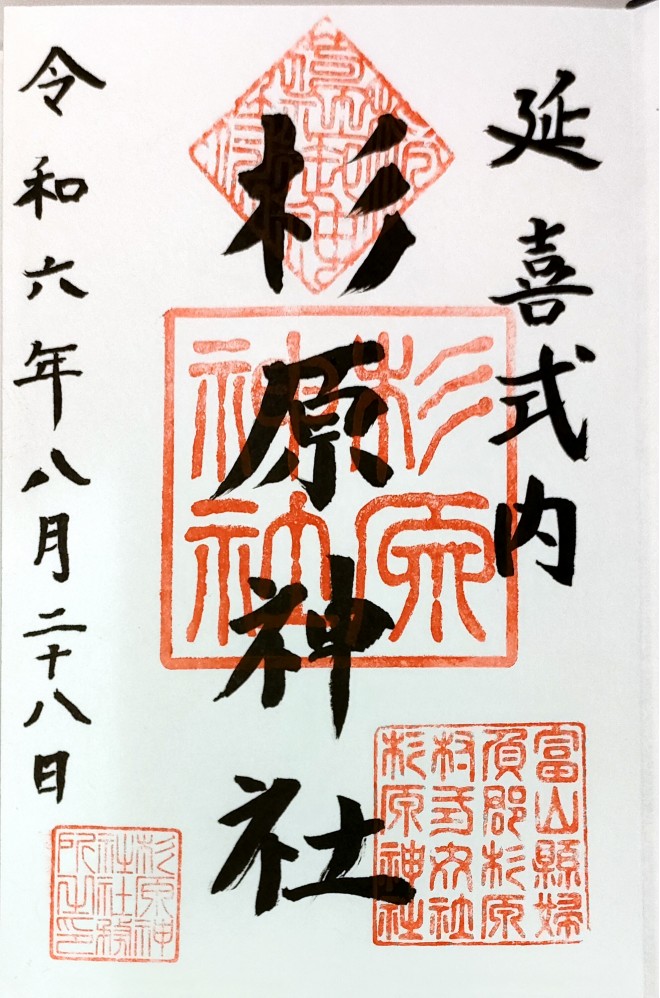 延喜式内
杉原神社
令和六年八月二十八日
杉原
神社
富山縣婦
負郡杉原
村式内社
杉原神社
杉原神
社社務
所之印